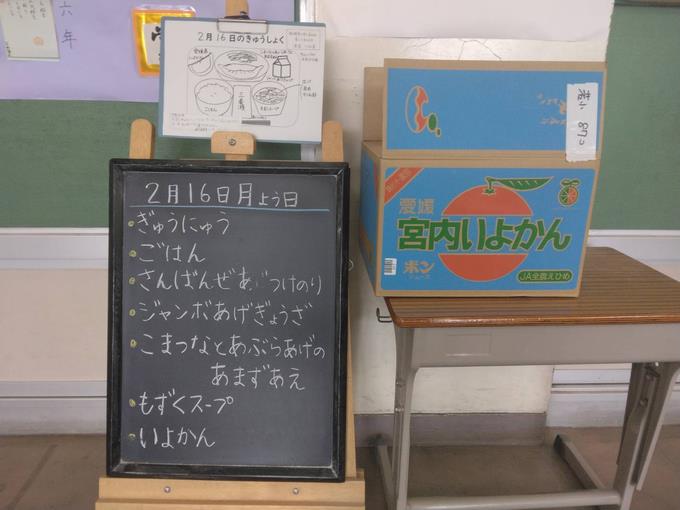 六年
2月16日のきゅうしょく
ごはん
三番瀬
2月16日月よう日
ぎゅうにゅう
ごはん
さんばんぜあじつけのり
ジャンボあげぎょうざ
こまつなとあぶらあげの
あまずあえ
もずくスープ
いよかん
愛媛
宮内いよかん
ポン
JA全農えひめ